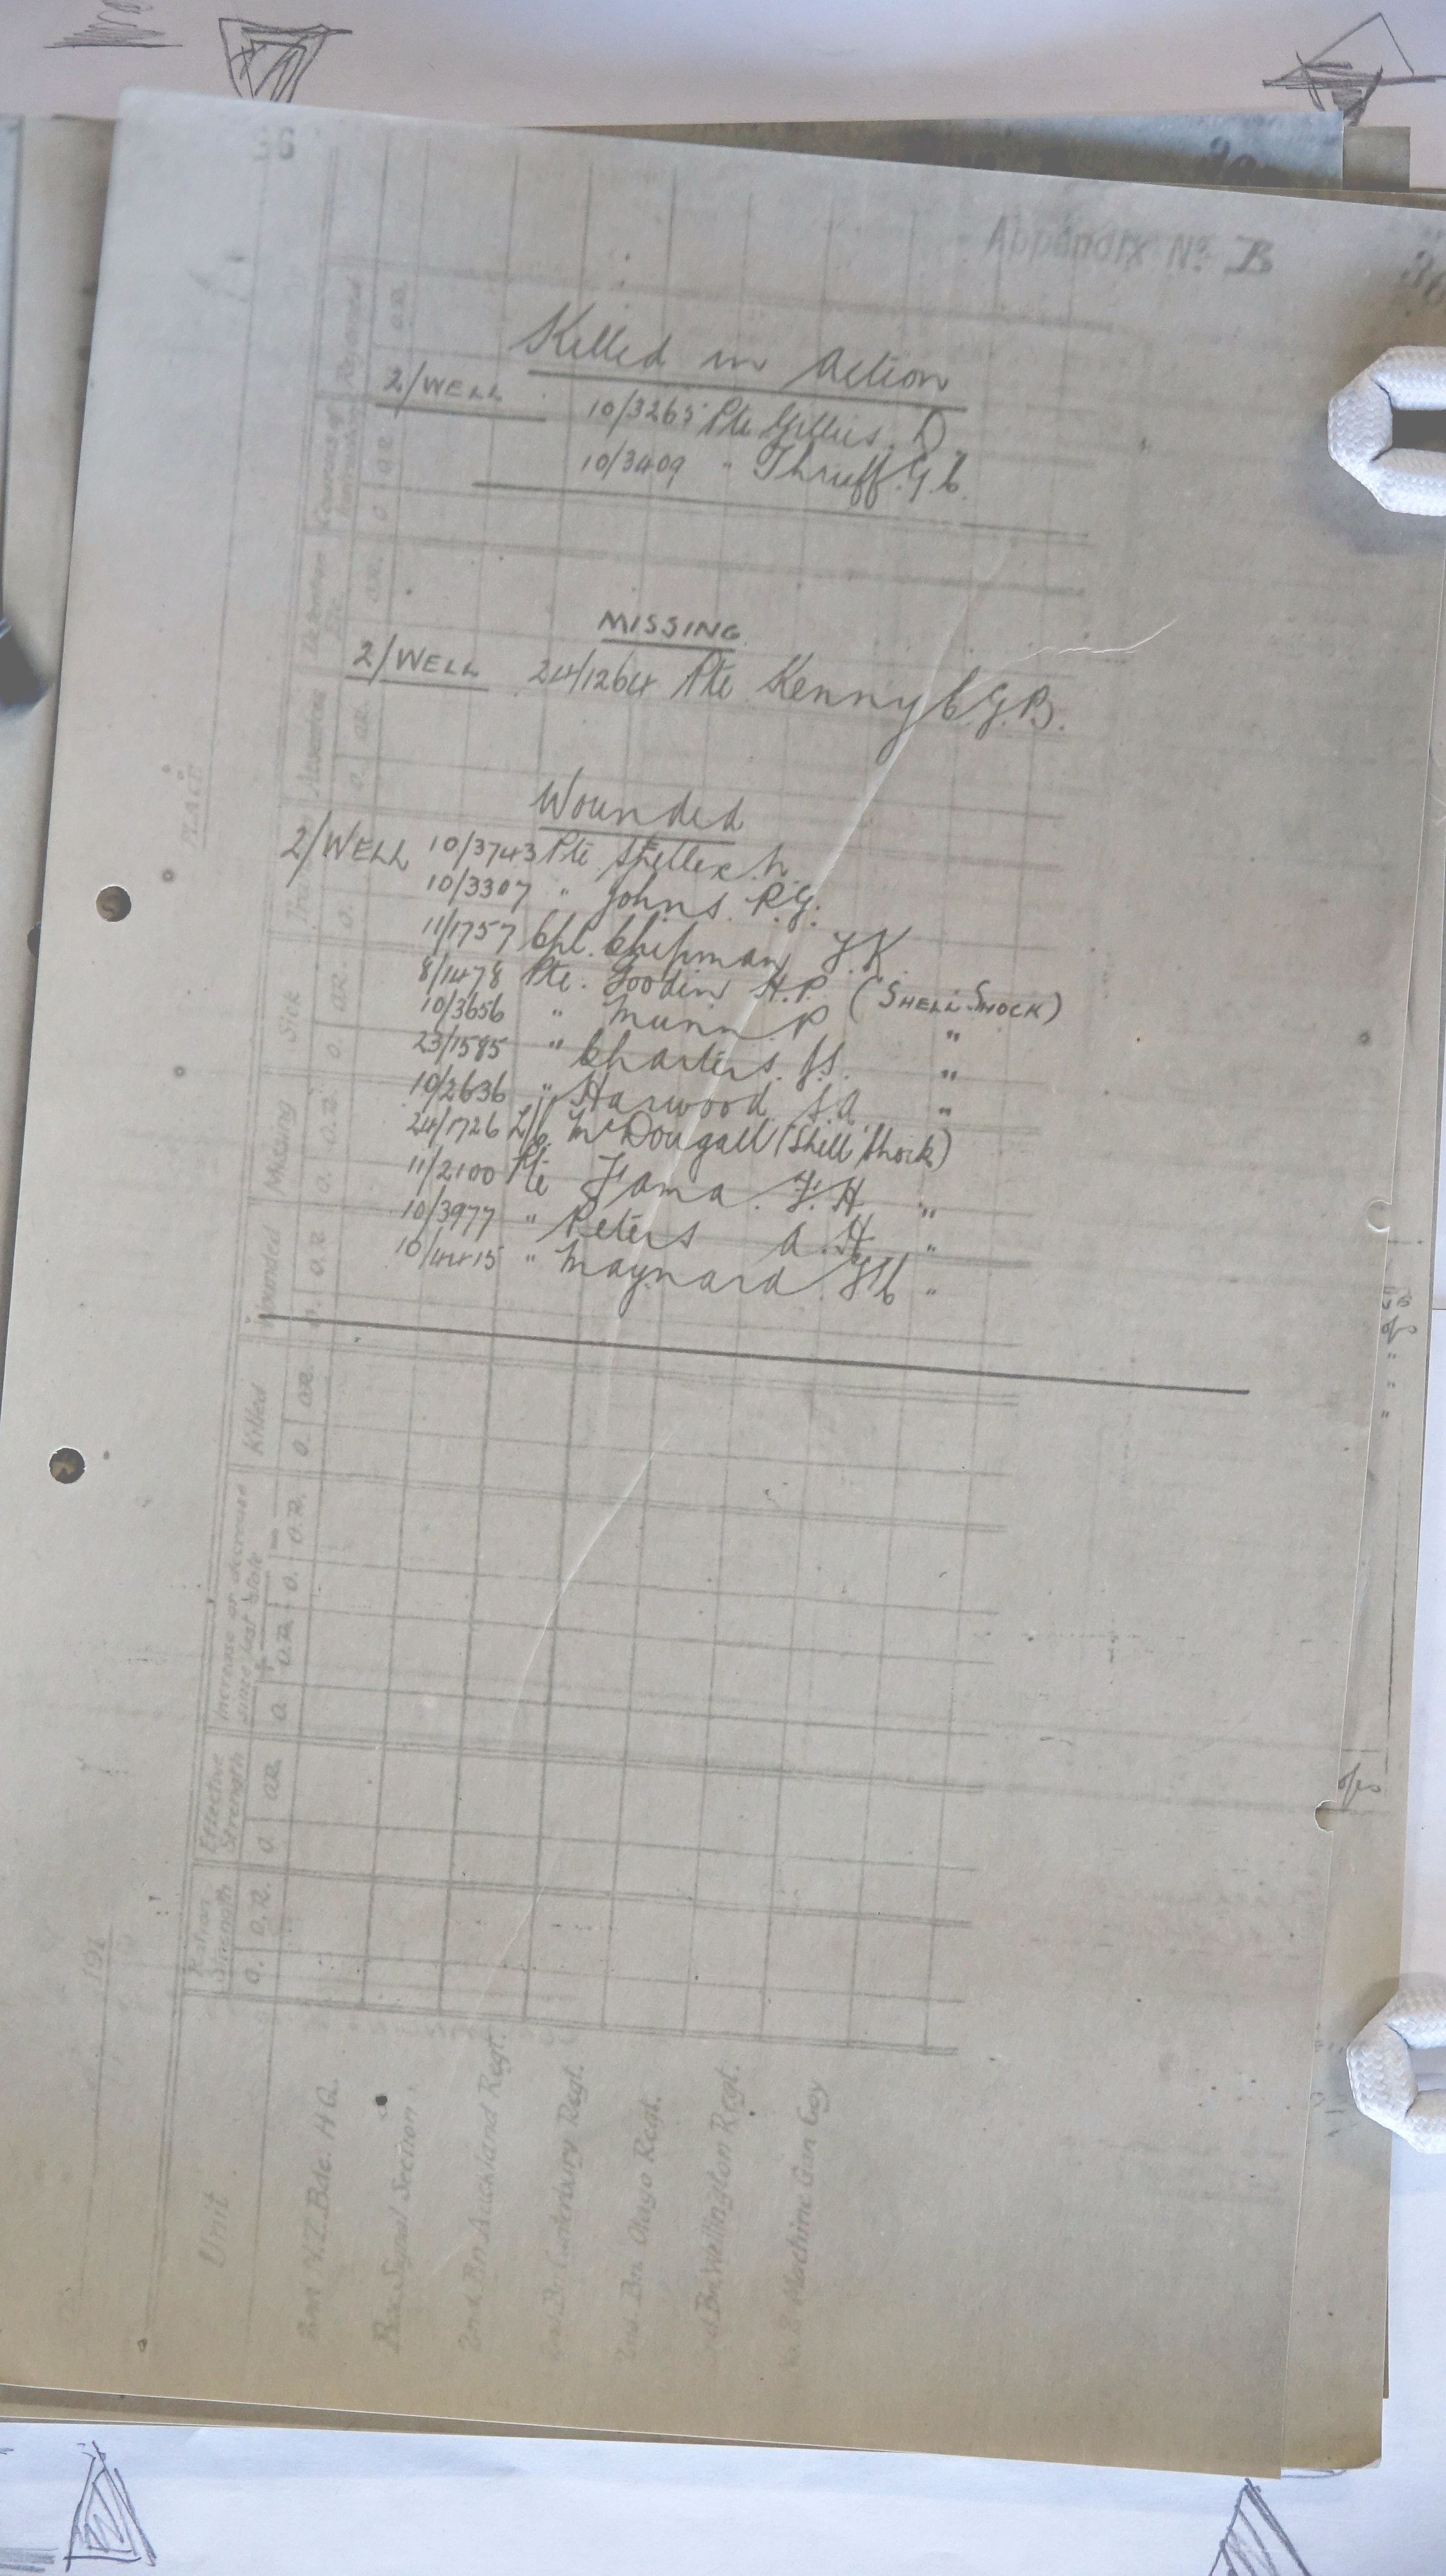 Appendix No B
Killed in Action
2/WELL 10/3265 Pte Gillies. D.
10/3409 " Thruff. G C
MISSING
2/WELL 24/1264 Pte Kenny C.G.B.
Wounded
2/WELL 10/3743 Pte
10/3307 " Johns. R.G.
11/1757 Cpl. Chipman J.K.
8/1478 Pte. Goodin H.P. (SHELL-SHOCK)
10/3656 " Munn P "
23/1585 " Charters. J.S. "
10/2636 " Harwood S.A "
24/1726 L/C. McDougall (Shell Shock)
11/2100 Pte Fama. F. H. "
10/3977 " Peters A. H. "
10/4415 " Maynard. "
PLACE
191
Unit
Ration Strength
O. O.R.
Effective Strength
O. O.R.
Increase or decrease since last state
+ -
O. O.R. O. O.R.
Killed
O. O.R.
Wounded
O. O.R.
Missing
O. O.R.
Sick
O. O.R.
2nd N.Z. Bde. H.Q.
Bde. Signal Section
2nd. Bn. Auckland Regt.
2nd. Bn. Canterbury Regt.
2nd. Bn. Otago Regt.
2nd. Bn. Wellington Regt.
Machine Gun Coy